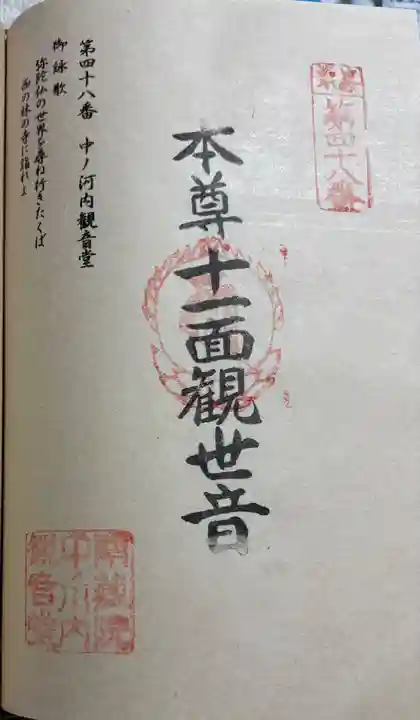 第四十八番
本尊十一面観世音
第四十八番 中ノ河内観音堂
御詠歌
弥陀仏の世界を尋ね行きたくば
西の林の寺に詣れよ
南蔵院
中ノ河内
観音堂